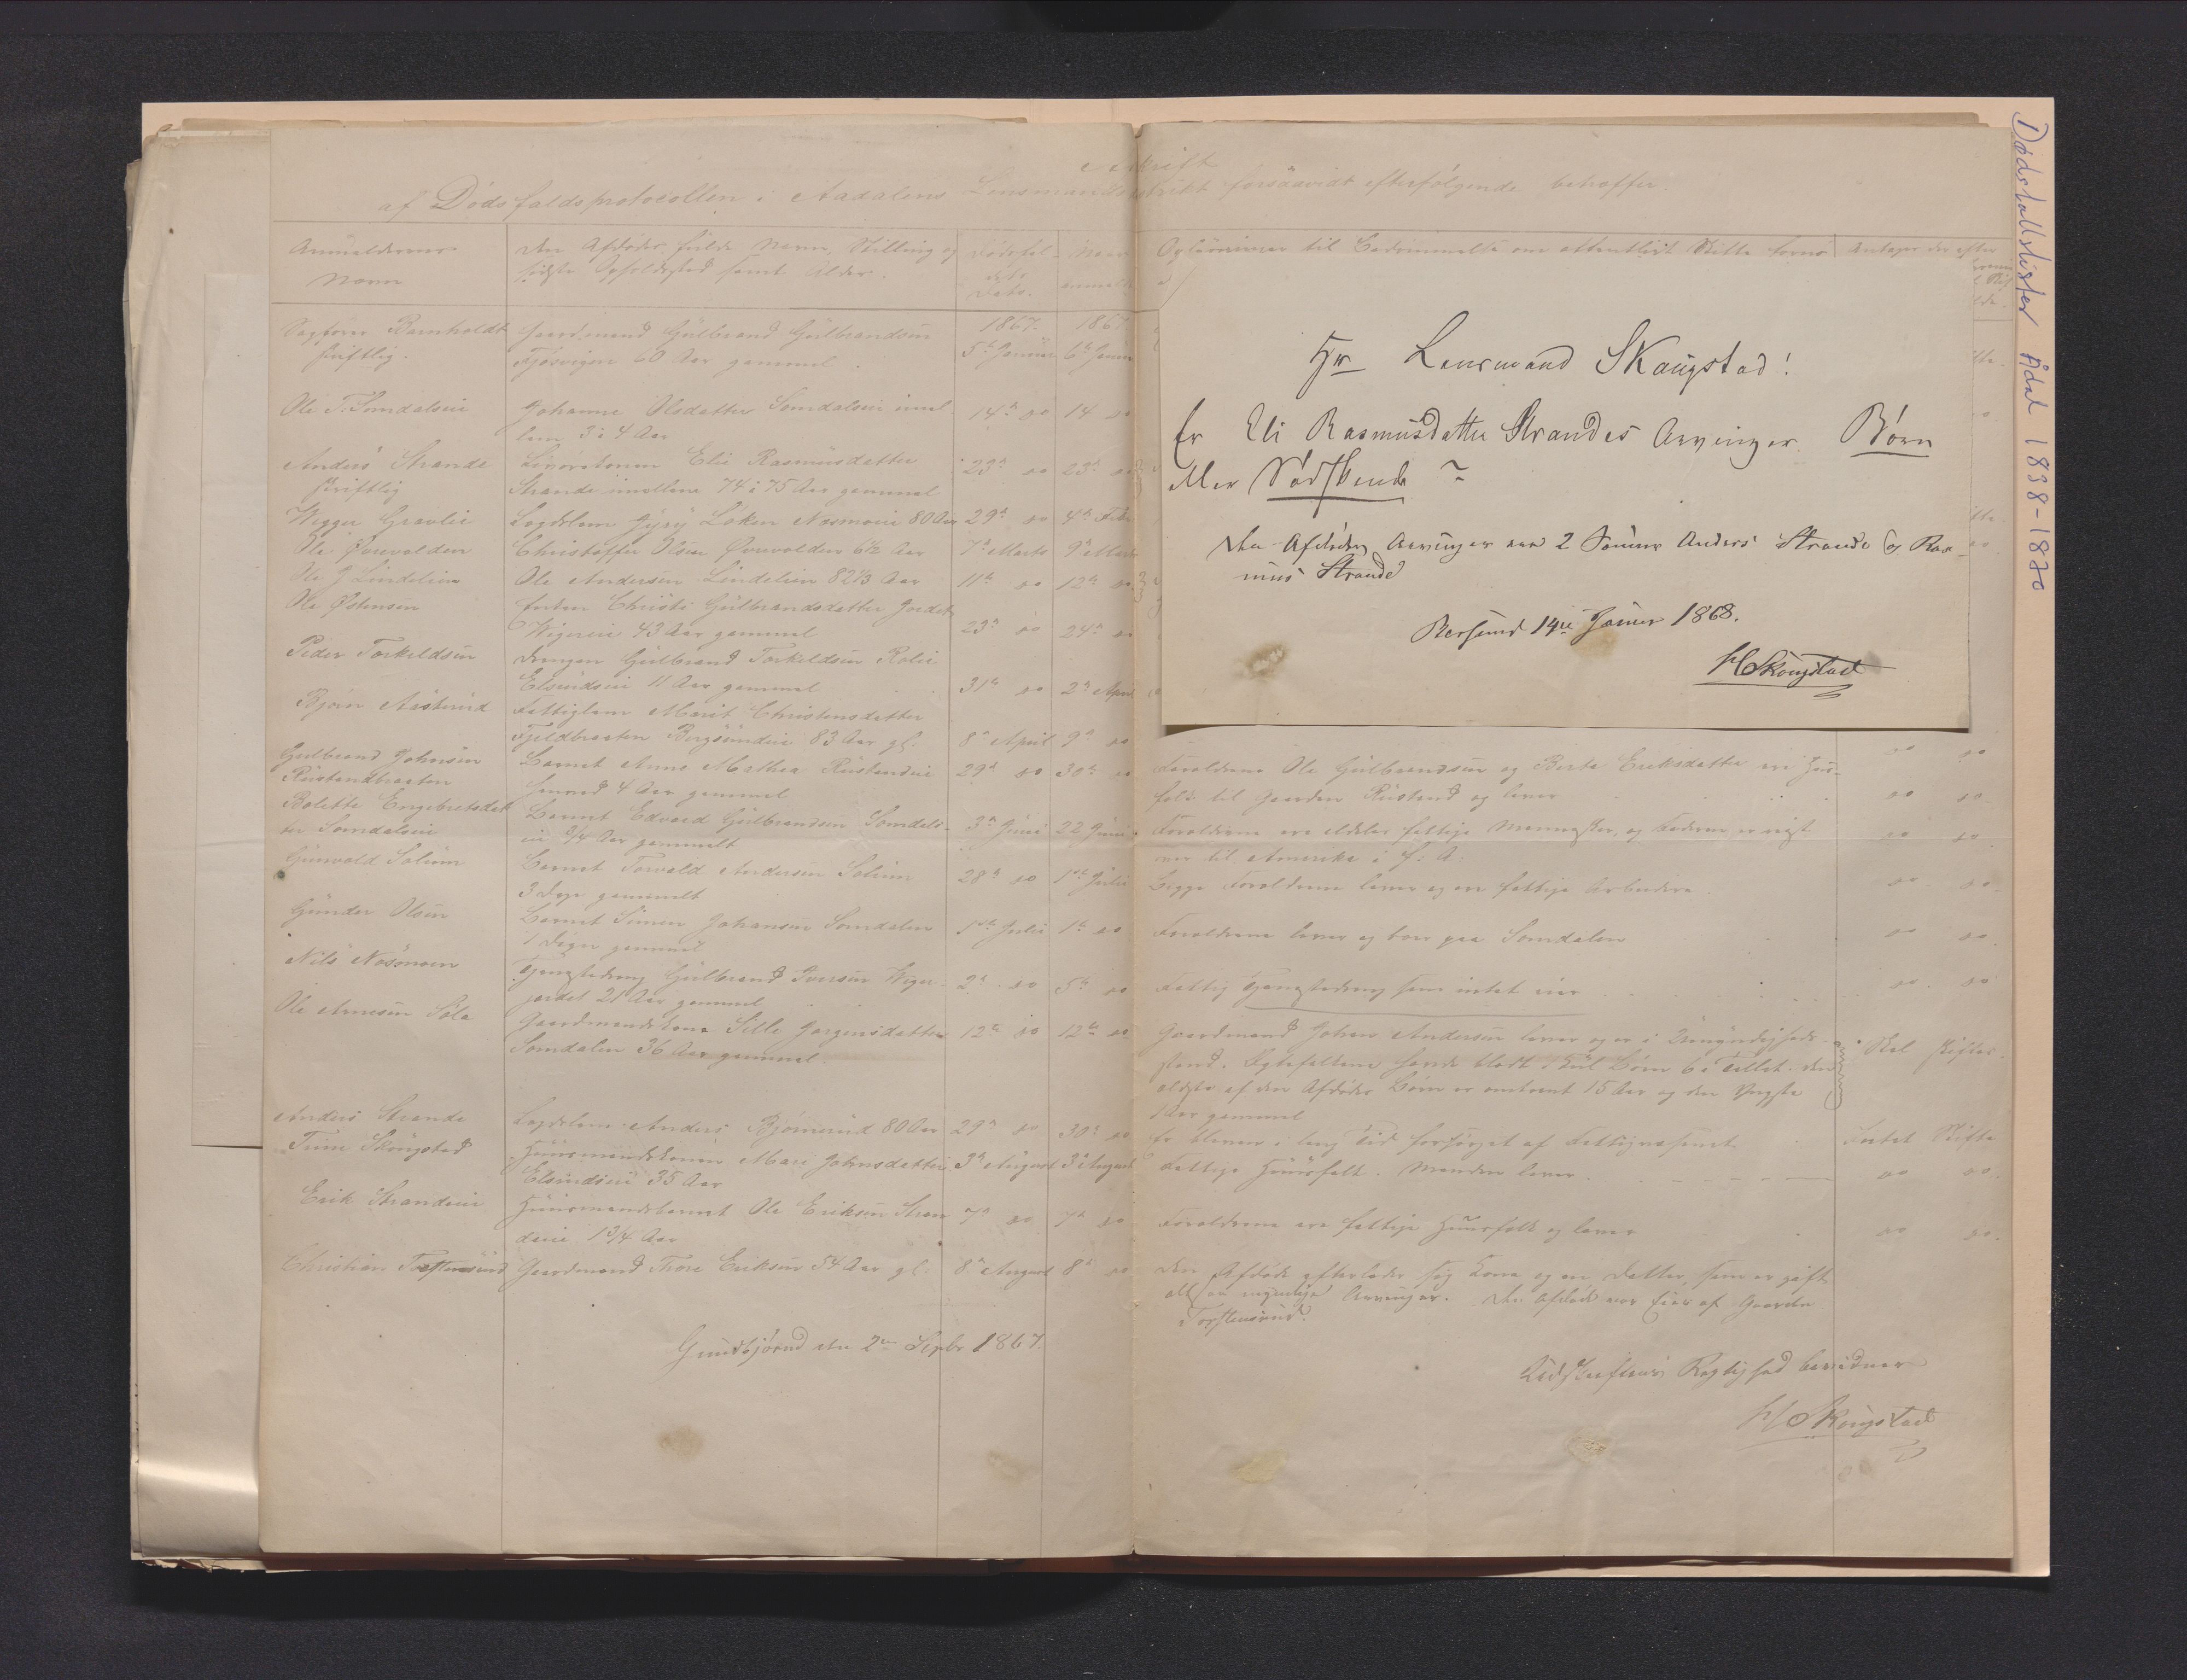 Dødsfallslister Ådal 1838-1870
Afskrift
af Dødsfaldsprotocollen i Aadalens Lensmandsdistrikt forsaavidt efterfølgende betræffer
Anmelderens
Navn
Den Afdødes fulde Navn, Stilling og
sidste Opholdssted samt Alder.
Dødsfal-
dets
Dato.
Naar
anmeldt
Oplysninger til Bedømmelse om offentligt Skifte
Sagfører Barnholdt
skriftlig.
Gaardmand Gulbrand Gulbrandsen
60 Aar gammel
1867.
5te Januar
1867
6te Januar
Ole T. Somdalseie
Johanne Olsdatter Somdalseie imel-
lem 3 à 4 Aar
14de do
14 do
Anders Strande
skriftlig
Elie Rasmusdatter
Strande imellem 74 à 75 Aar gammel
23de do
23de do
Wegger Gravlie
Lægdslem Løken Næsmoeie 80 Aar
29de do
4de Febr
Ole Øvrevolden
Christoffer Olsen Øvrevolden 6½ Aar
7de Marts
9de Marts
Ole G Lindelien
Ole Andersen Lindelien 82⅓ Aar
11te do
12te do
Ole Østensen
Enken Christi Gulbrandsdatter Jordet
43 Aar gammel
23de do
24de do
Peder Torkeldsen
Drengen Gulbrand Torkeldsen Rolie
Elsrudeie 11 Aar gammel
31te do
2de April
Bjørn Aasterud
Fattiglem Marit Christensdatter
Fjeldbraaten Bergsundeie 83 Aar gl.
8de April
9de do
Gulbrand Johnsen
Rustandbraaten
Barnet Anne Mathea Rustandeie
4 Aar gammel
29de do
30te do
Forældrene Ole Gulbrandsen og Berte Eriksdatter ere Huus-
folk til Gaarden Rustand og lever
do do
Bolette Engebretsdat
ter Somdalseie
Barnet Edvard Gulbrandsen Somdals-
eie ¾ Aar gammelt
3de Juni
22 Juni
Forældrene ere fattige Mennesker, og Faderen er reist
over til Amerika i f: A:
do do
Gunvald Solum
Barnet Torvald Andersen Solum
3 Dage gammelt
28de do
1ste Julie
Begge Forældrene lever og ere fattige Arbeidere
do do
Gunder Olsen
Barnet Simen Johansen Somdalen
1 Døgn gammel
1ste Julie
1te do
Forældrene lever og boer paa Somdalen
do do
Nils Næsmoen
Tjenestedreng Gulbrand Iversen Wager-
jordet 21 Aar gammel
2de do
5te do
Fattig Tjenestedreng som intet eier
do do
Ole Arnesen Sola
Gaardmandskone Sille Jørgensdatter
Somdalen 36 Aar gammel
12te do
12te do
Gaardmand Johan Andersen lever og er i Umyndigheds-
stand. Ægtefolkene havde blodt i Kuld Børn 6 i Tallet. den
ældste af den Afdødes Børn er omtrent 15 Aar og den Yngste
1 Aar gammel
Skal skiftes.
Anders Strande
Lægdslem Anders Bjørnerud 80 Aar
29de do
30te do
Er bleven i lang Tid forsørget af Fattigvæsenet
Intet Skifte
Trine Skougstad
Huusmandskonen Mari Johnsdatter
Elsrudeie 35 Aar
3de August
3de August
Fattige Huusfolk. Manden lever
do do
Erik Strandeie
Huusmandsbarnet Ole Eriksen Stran
deeie 1¾ Aar
7de do
7de do
Forældrene ere fattige Huusfolk og lever
do do.
Christian Torstensrud
Gaardmand Thore Eriksen 54 Aar gl.
8de August
8de do
Den Afdøde efterlader sig Kone og en Datter, som er gift
altsaa myndige Arvinger. Den Afdøde var Eier af Gaarden
Torstensrud.
den 2den Septbr 1867.
Udskriftens Rigtighed bevidner
H Skougstad
Hr Lensmand Skaugstad!
Er Eli Rasmusdatter Strandes Arvinger Børn
eller Sødskende?
Den Afdødes Arvinger ere 2 Sønner Anders Strande og Ras-
mus Strande
14de Januar 1868.
H Skougstad